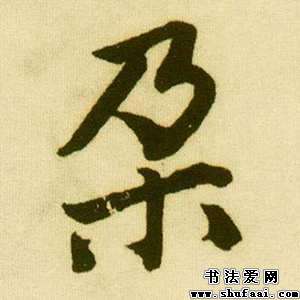 朵
书法爱网
www.shufaai.com